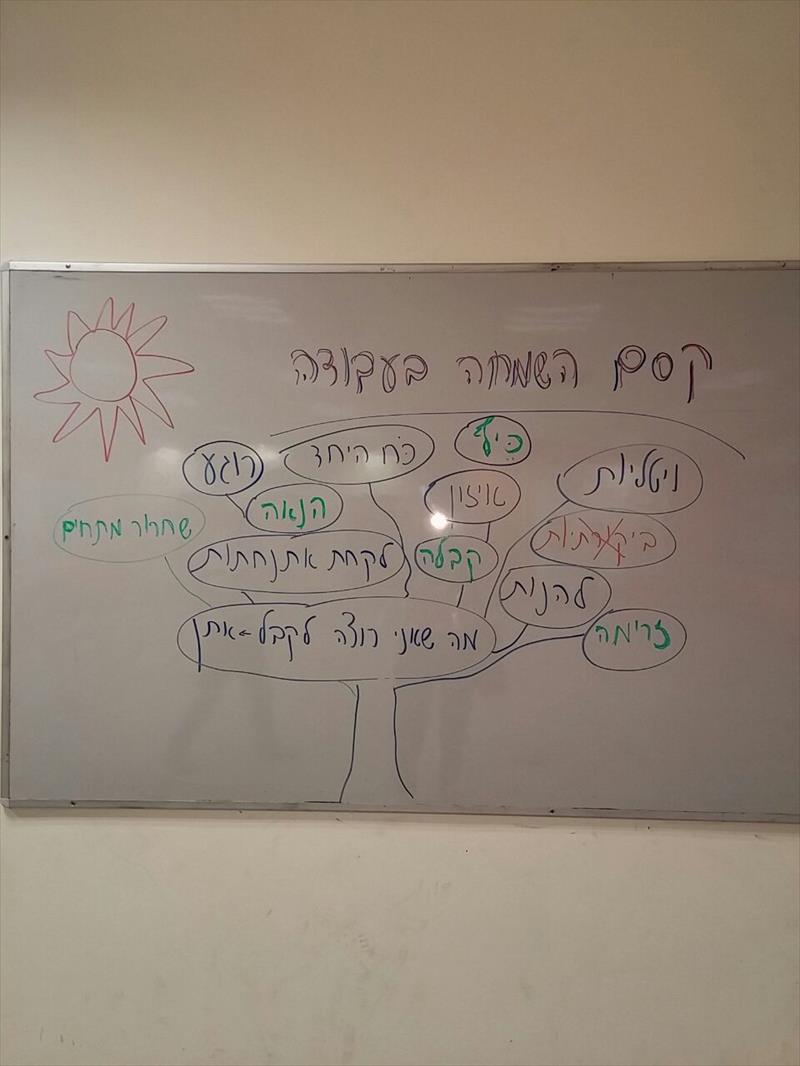 קסם השמחה בעבודה
כיף
כח היחד
רוגע
ויטליות
איזון
הנאה
שחרור מתחים
ביקורתיות
קבלה
לקחת אתנחתות
להנות
זרימה
מה שאני רוצה לקבל ← אתן